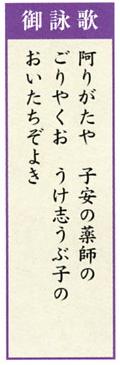 御詠歌
阿りがたや　子安の薬師の
ごりやくお　うけ志うぶ子の
おいたちぞよき